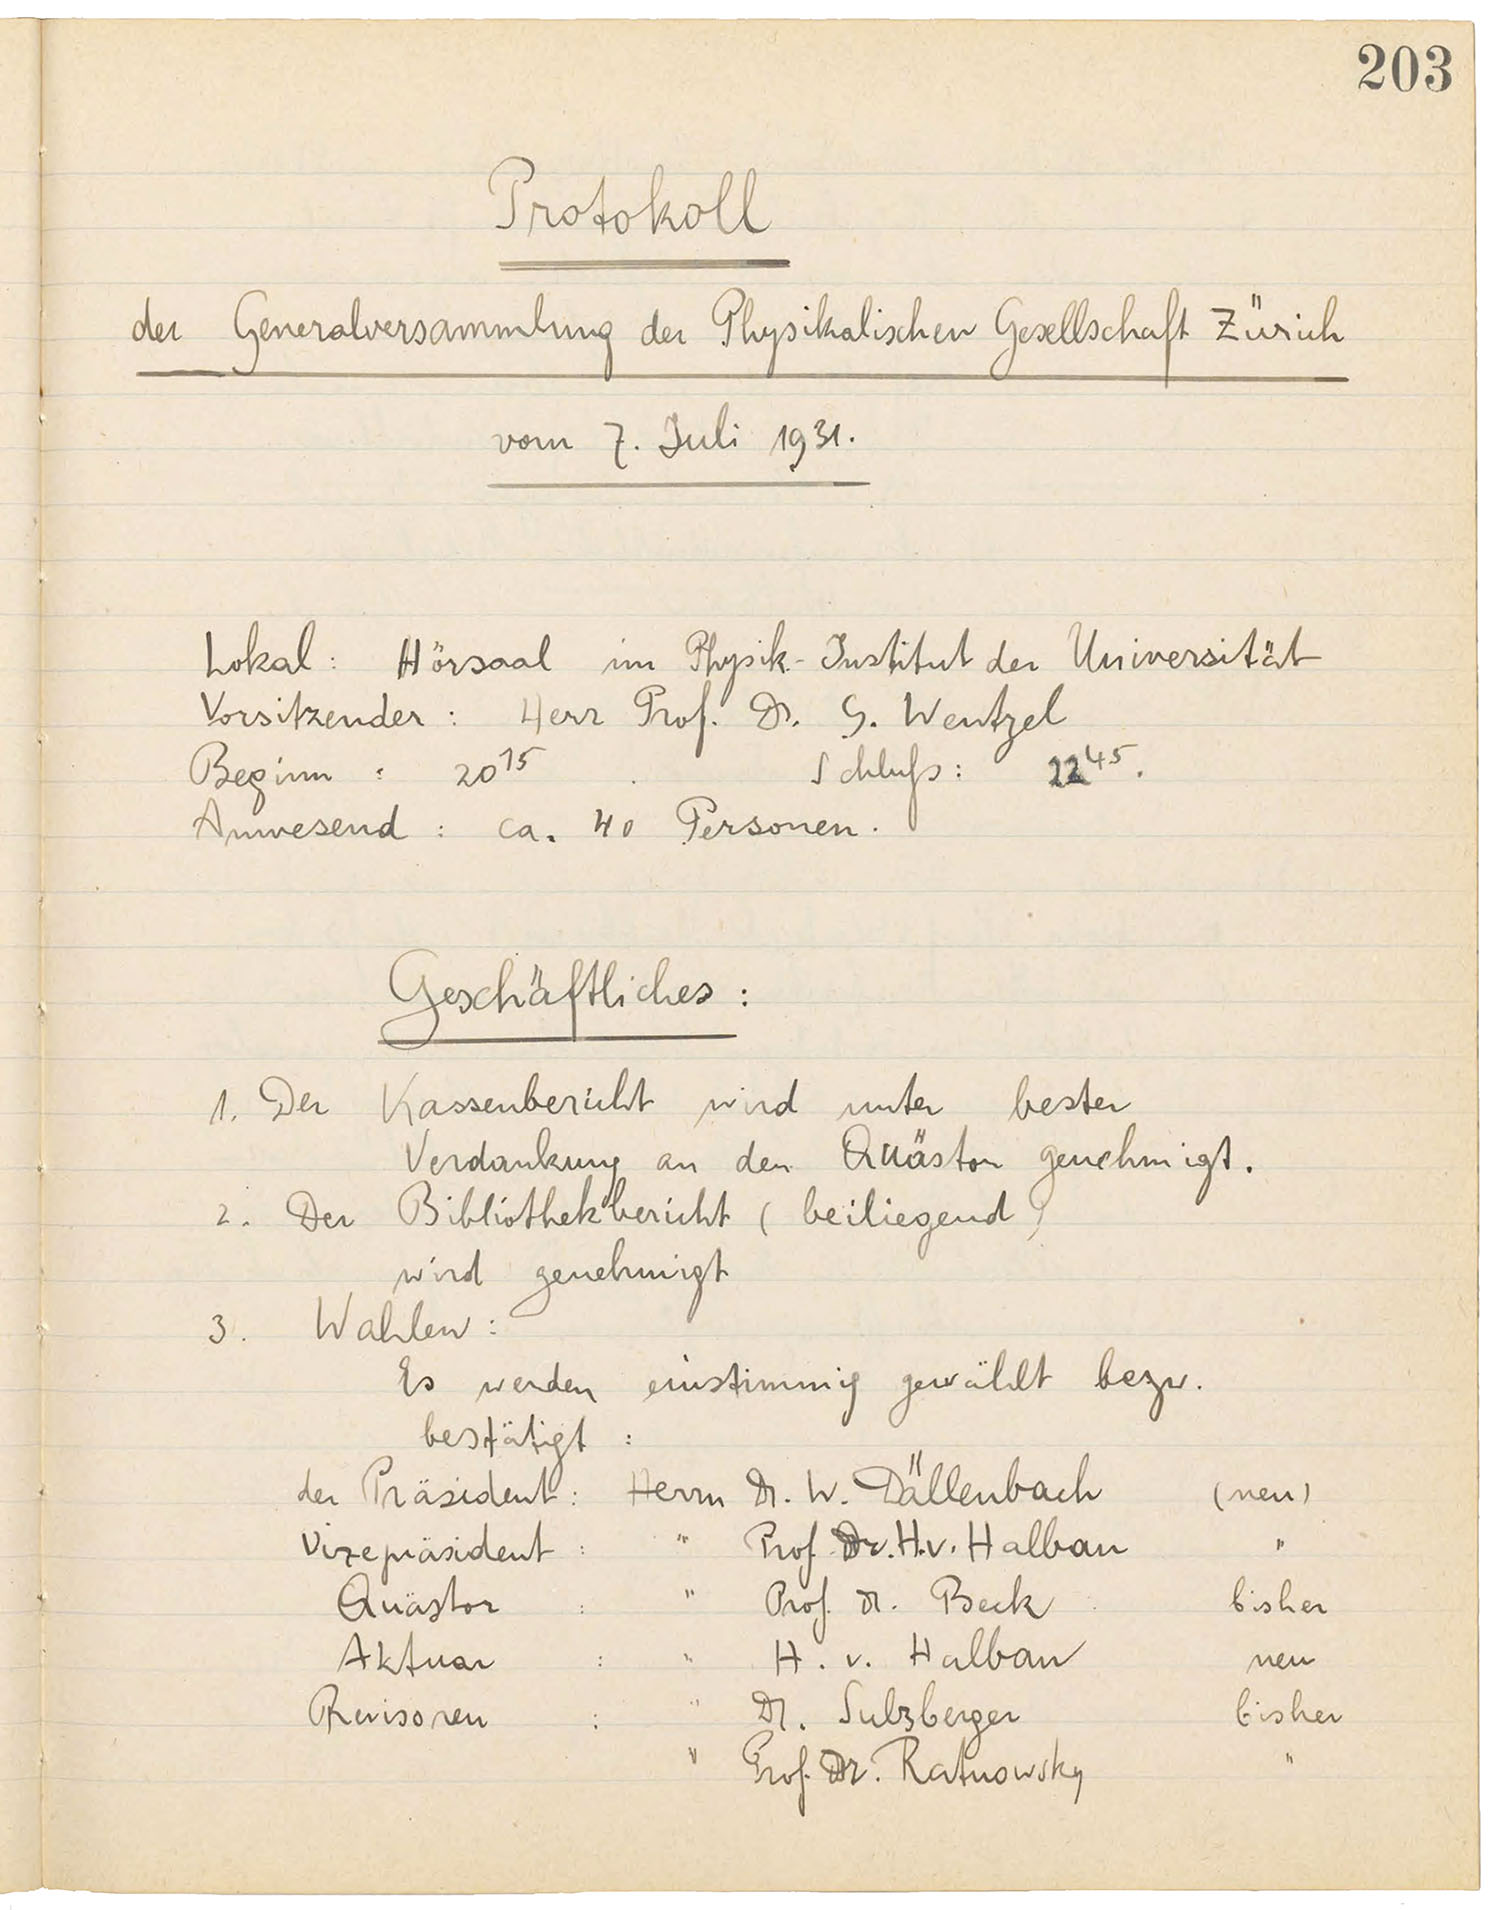 203
Protokoll
der Generalversammlung der Physikalischen Gesellschaft Zürich
vom 7. Juli 1931.
Lokal: Hörsaal im Physik-Institut der Universität
Vorsitzender: Herr Prof. Dr. G. Wentzel
Beginn: 20¹⁵ . Schluss: 22⁴⁵.
Anwesend: ca. 40 Personen.
Geschäftliches:
1. Der Kassenbericht wird unter bester
Verdankung an den Quästor genehmigt.
2. Der Bibliothekbericht (beiliegend)
wird genehmigt
3. Wahlen:
Es werden einstimmig gewählt bezw.
bestätigt:
der Präsident: Herrn Dr. W. Dällenbach (neu)
Vizepräsident: " Prof. Dr. H. v. Halban "
Quästor : " Prof. Dr. Beck bisher
Aktuar : " H. v. Halban neu
Revisoren : " Dr. Sulzberger bisher
" Prof. Dr. Ratnowsky "